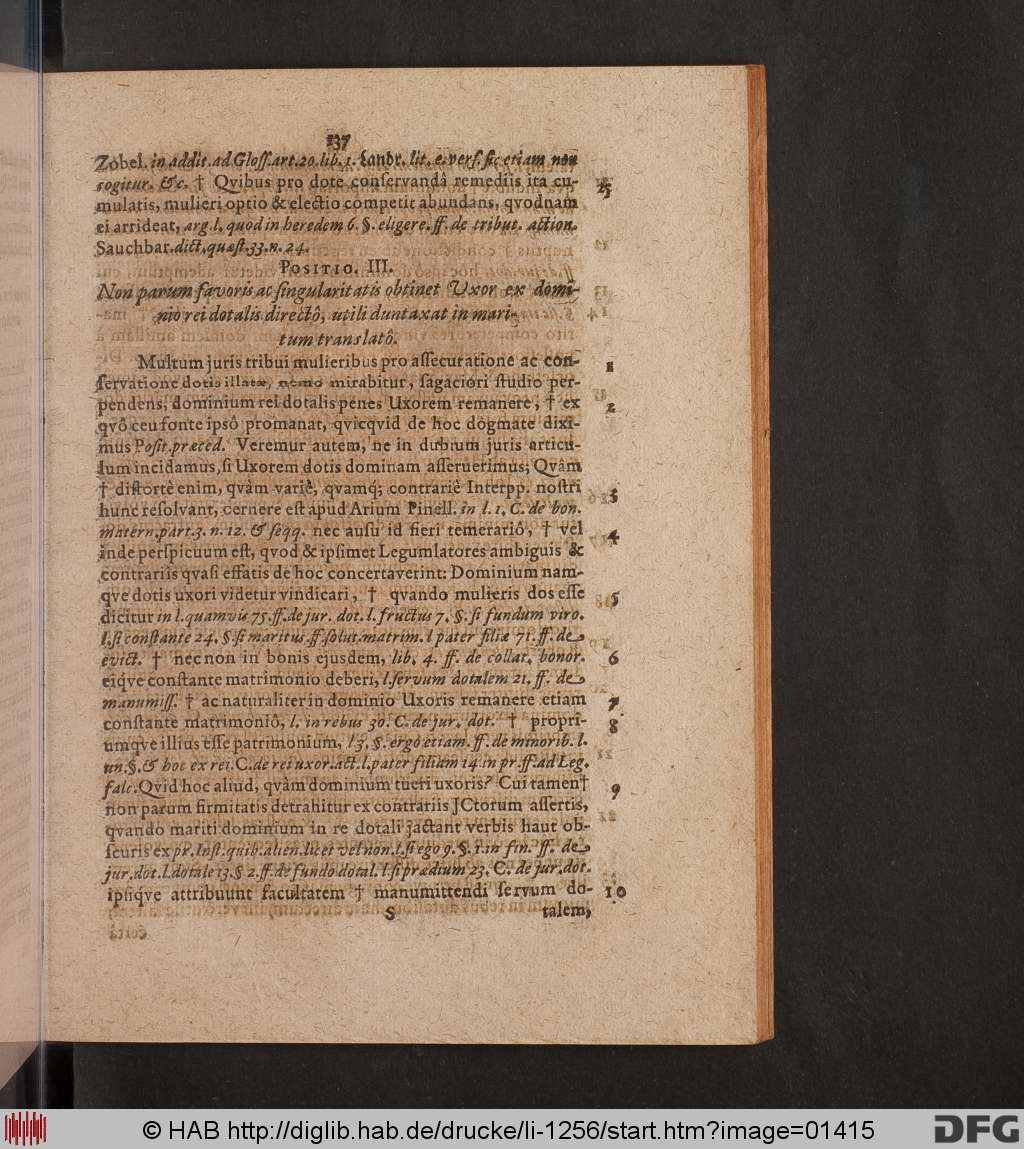 137
Zobel. in addit. ad Gloſſ. art. 20. lib. 1. Landr. lit. e. verſ. ſic etiam non
cogitur. &c. † Qvibus pro dote conſervandâ remediis ita cu- 25
mulatis, mulieri optio & electio competit abundans, qvodnam
ei arrideat, arg. l. quod in heredem 6. §. eligere. ff. de tribut. action.
Sauchbar. dict. quæſt. 33. n. 24.
POSITIO. III.
Non parum favoris ac ſingularitatis obtinet Uxor ex domi-
nio rei dotalis directô, utili duntaxat in mari-
tum translatô.
Multum juris tribui mulieribus pro aſſecuratione ac con- 1
ſervatione dotis illatæ, nemo mirabitur, ſagaciori ſtudio per-
pendens, dominium rei dotalis penes Uxorem remanere, † ex 2
qvô ceu fonte ipsô promanat, qvicqvid de hoc dogmate dixi-
mus Poſit. præced. Veremur autem, ne in dubium juris articu-
lum incidamus, ſi Uxorem dotis dominam aſſeruerimus; Qvâm
† diſtortè enim, qvàm variè, qvamq́; contrariè Interpp. noſtri 3
hunc reſolvant, cernere eſt apud Arium Pinell. in l. 1. C. de bon.
matern. part. 3. n. 12. & ſeqq. nec auſu id fieri temerariô, † vel 4
inde perſpicuum eſt, qvod & ipſimet Legumlatores ambiguis &
contrariis qvaſi effatis de hoc concertaverint: Dominium nam-
qve dotis uxori videtur vindicari, † qvando mulieris dos eſſe 5
dicitur in l. quamvis 75. ff. de jur. dot. l. fructus 7. §. ſi fundum viro.
l. ſi conſtante 24. §. ſi maritus. ff. ſolut. matrim. l pater filiæ 71. ff. de
evict. † nec non in bonis ejusdem, lib. 4. ff. de collat. bonor. 6
eiqve conſtante matrimonio deberi, l. ſervum dotalem 21. ff. de
manumiſſ. † ac naturaliter in dominio Uxoris remanere etiam 7
conſtante matrimoniô, l. in rebus 30. C. de jur. dot. † propri- 8
umqve illius eſſe patrimonium, l 3. §. ergo etiam. ff. de minorib. l.
un. §. & hoc ex rei. C. de rei uxor. act. l. pater filium 14 in pr. ff. ad Leg.
falc. Qvid hoc aliud, qvàm dominium tueri uxoris? Cui tamen† 9
non parum firmitatis detrahitur ex contrariis JCtorum aſſertis,
qvando mariti dominium in re dotali jactant verbis haut ob-
ſcuris ex pr. Inſt. quib. alien. licet vel non. l. ſi ego 9. §. 1. in fin. ff. de
jur. dot. l. dotale 13. § 2. ff. de fundo dotal. l. ſi prædium 23. C. de jur. dot.
ipſiqve attribuunt facultatem † manumittendi ſervum do- 10
S talem,
© HAB http://diglib.hab.de/drucke/li-1256/start.htm?image=01415
DFG